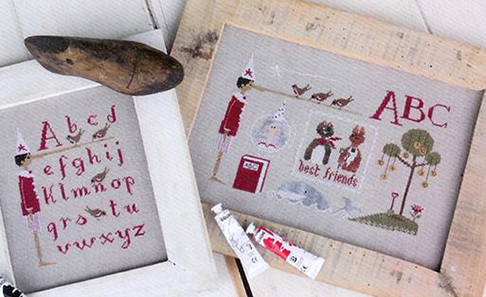 Abcd
efghij
klmnop
qrstu
vwxyz
ABC
best friends